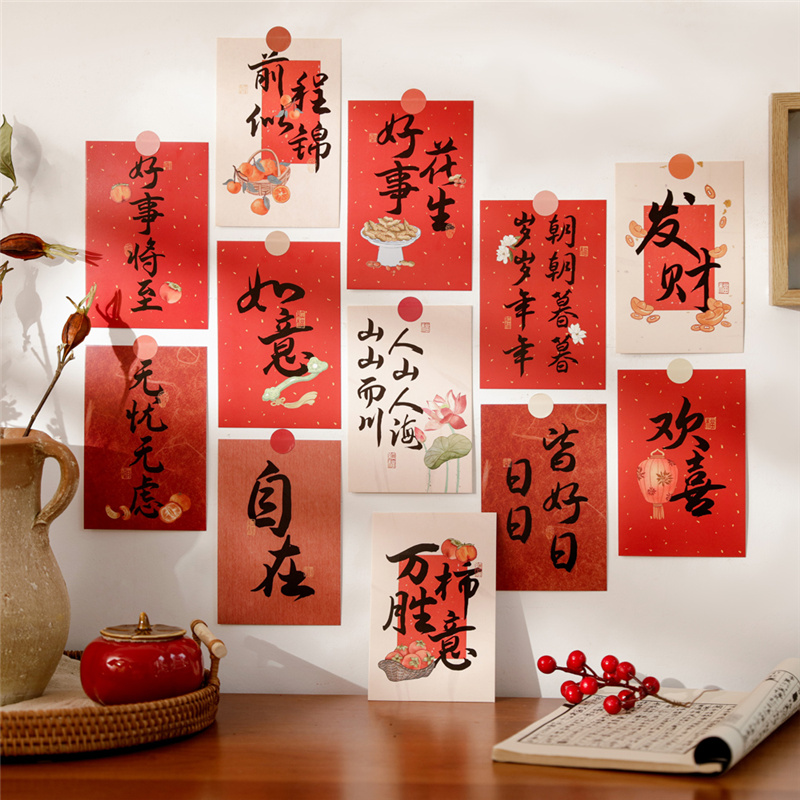 前程
似锦
好事
花生
好事将至
朝朝暮暮
岁岁年年
发财
如意
人山人海
山山而川
无忧无虑
欢喜
自在
日日
皆好日
万柿
胜意